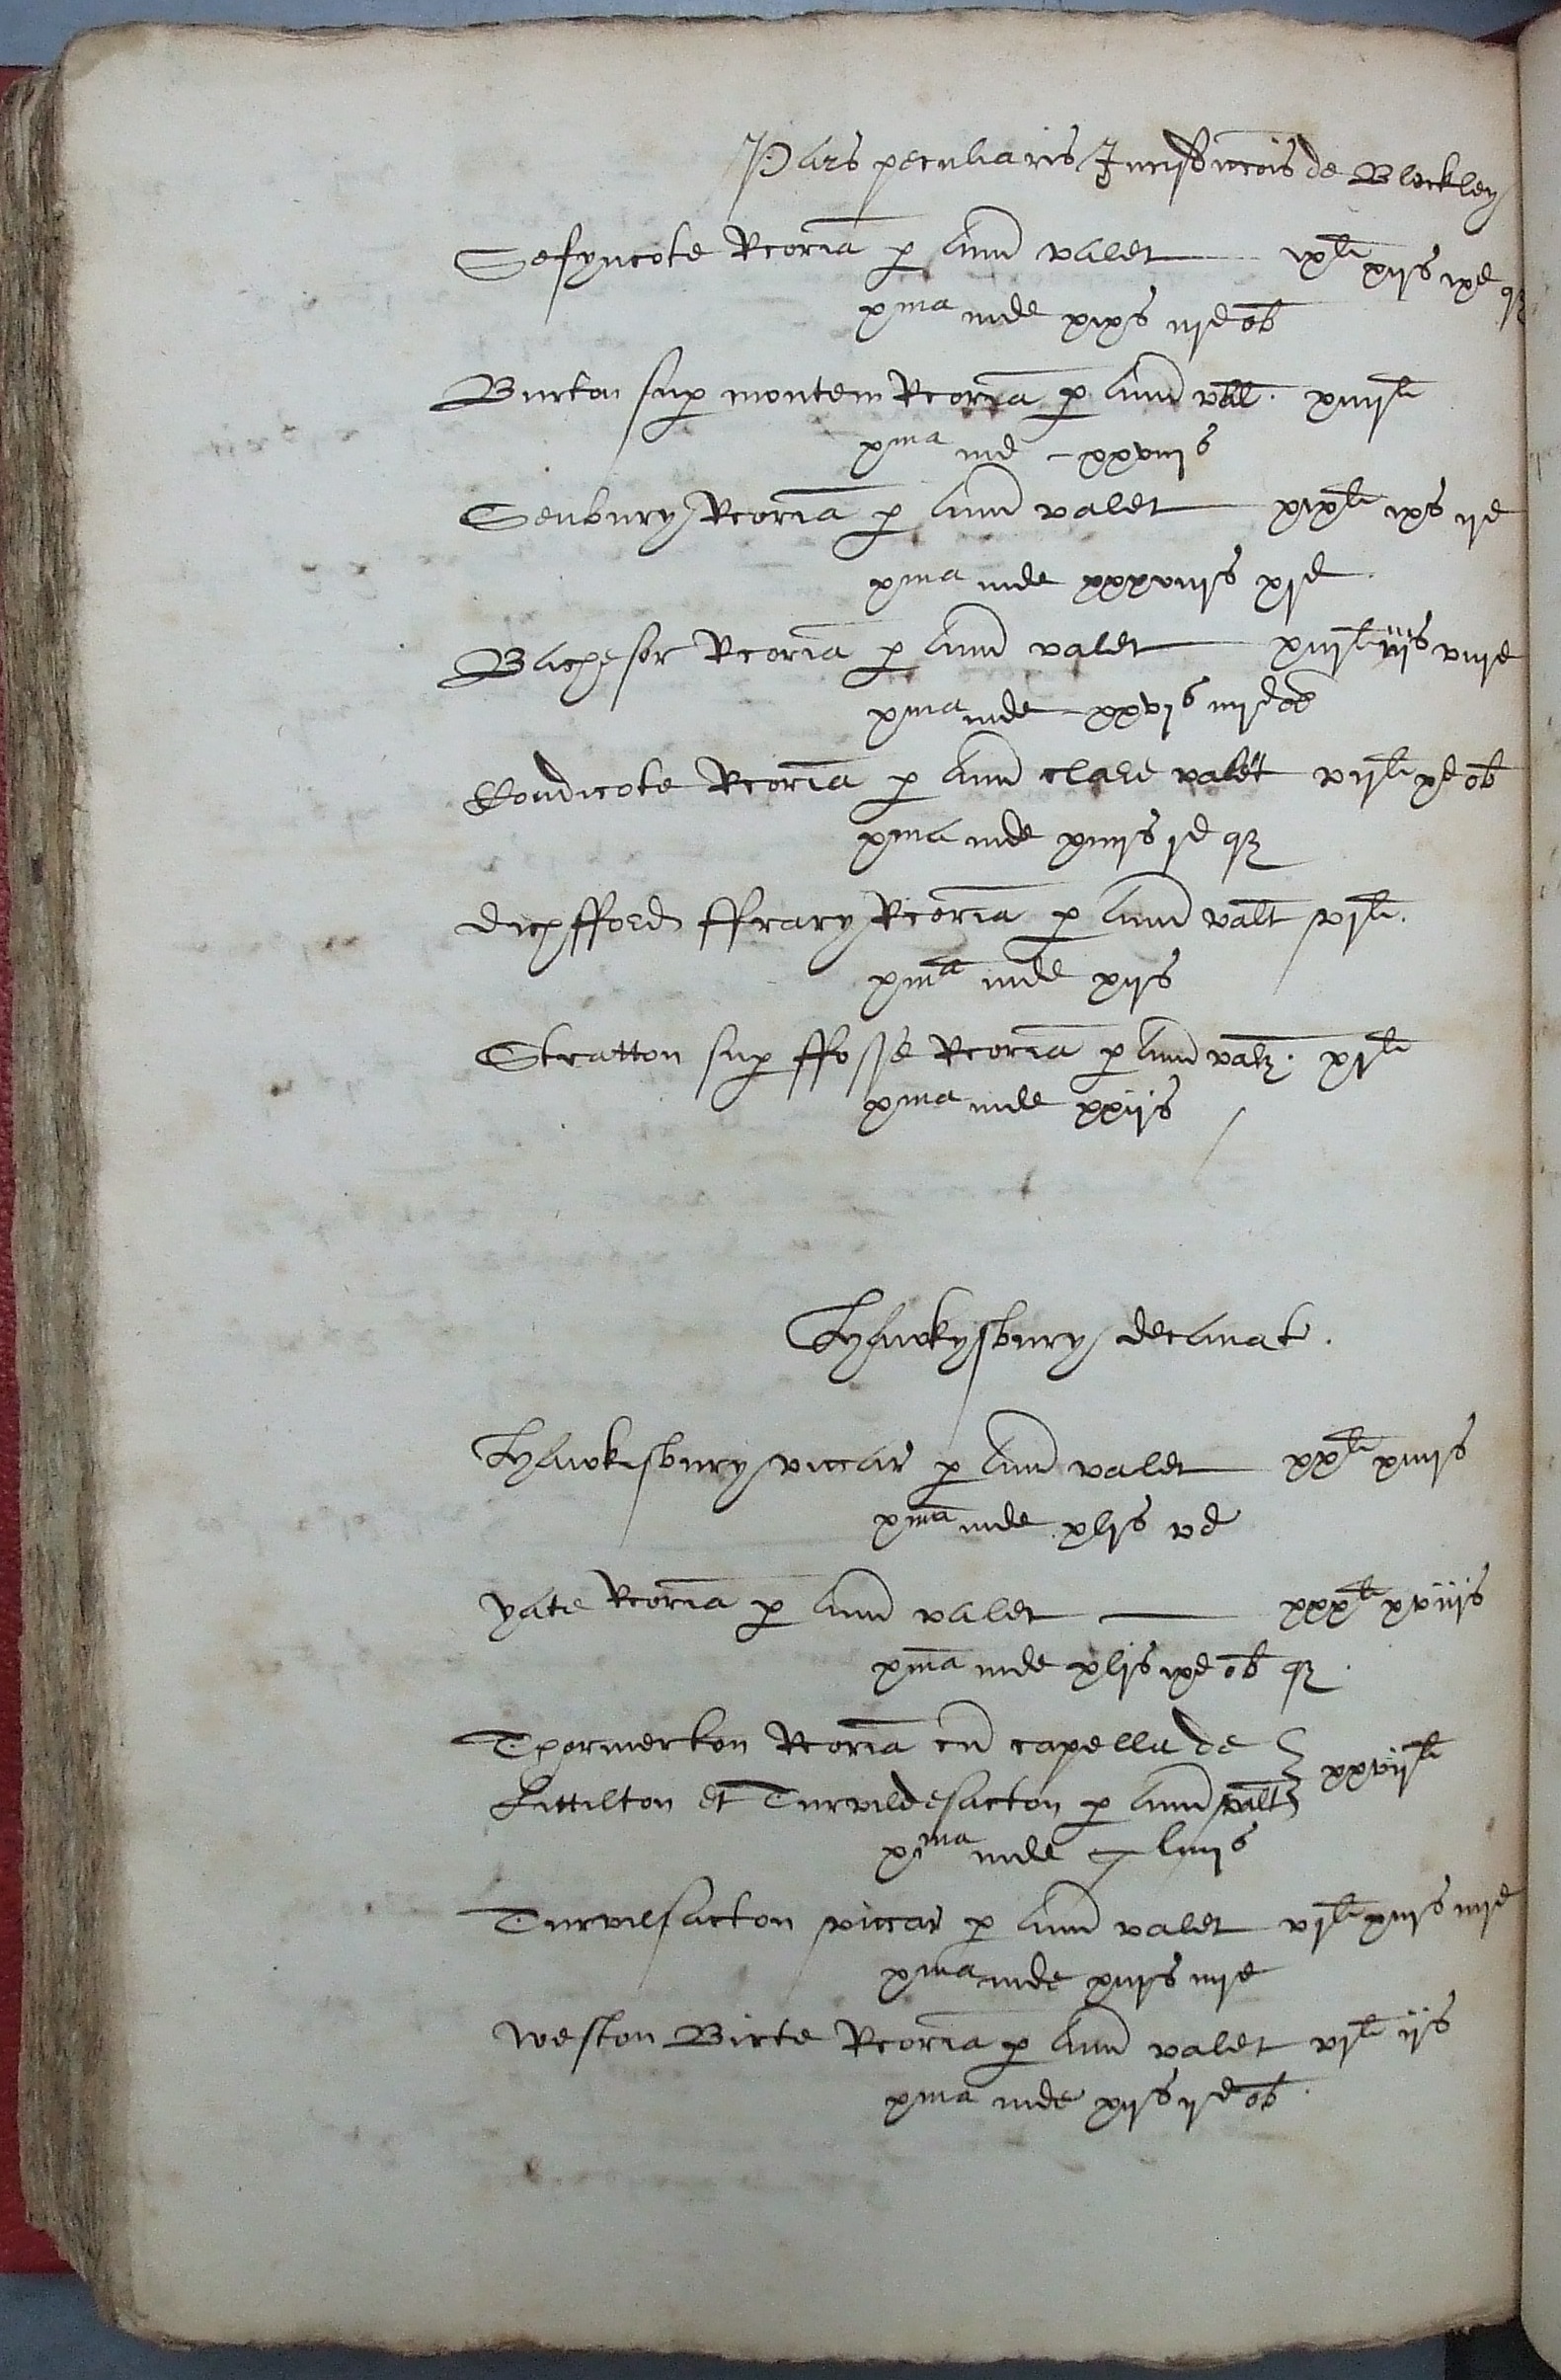 Pars peculiaris Jurisdiccois de Blockley
Sesyncote Rcoria p Annu valet ixli xiis ixd qz
xma inde xixs iiid ob
Burton sup montem Rcoria p Annu val. xiiijli
xma ind xxviijs
Senbury Rcoria p Annu valet xixli ixs ijd
xma inde xxxviijs xjd
Bachesor Rcoria p Annu valet xiijli iijs viijd
xma inde xxvjs iiijd ob
Condicote Rcoria p Annu clare valet vijli xd ob
xma inde xiiijs jd qz
dichfford ffrary Rcoria p Annu valt vjli.
xma inde xijs
Stratton sup ffosse Rcoria p Annu valz. xjli
xma inde xxijs
Hawkysbury decanat.
Hawkisbury viccar p Annu valet xxli xiiijs
xma inde xljs vd
Yate Rcoria p Annu valet xxxli xvijs
xma inde xljs ixd ob qz.
Thormerton Rcoria cu capella de
Littilton et Turvildesacton p Annu valt xxvijli
xma inde liiijs
Turvilsacton viccar p Annu valet vjli xiijs iiijd
xma inde xiijs iiijd
Weston Birte Rcoria p Annu valet vjli ijs
xma inde xijs ijd ob.